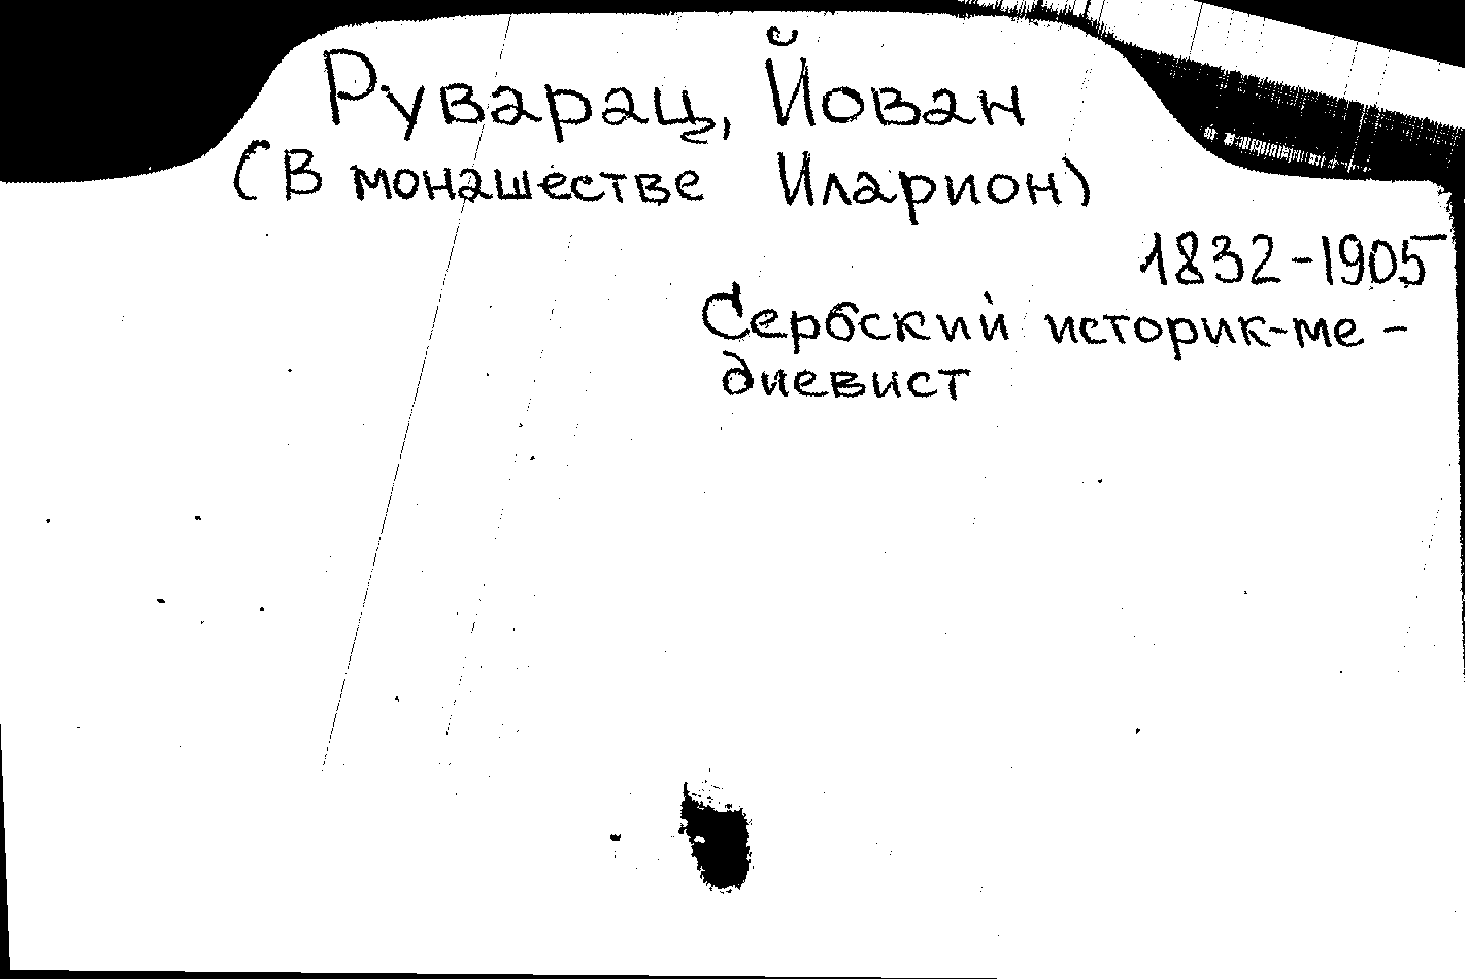 Руварац, Йован
(В монашестве Иларион)
1832-1905
Сербский историк-ме-
диевист